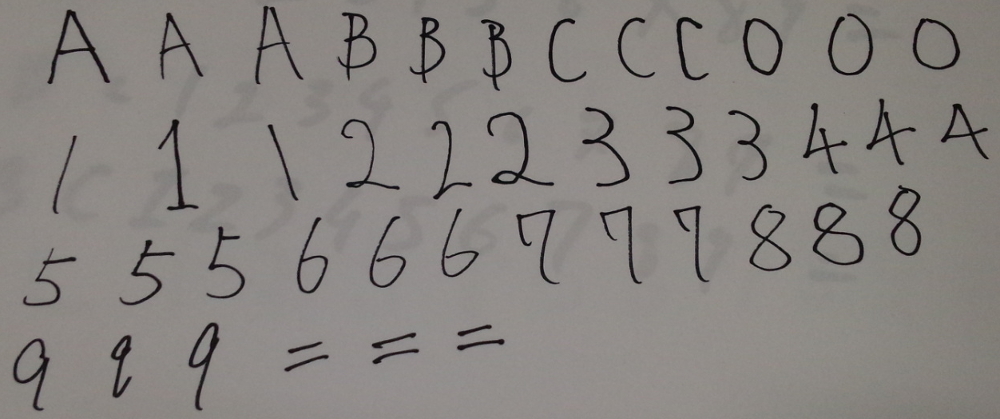 A A A B B B C C C O O O
1 1 1 2 2 2 3 3 3 4 4 4
5 5 5 6 6 6 7 7 7 8 8 8
9 9 9 = = =